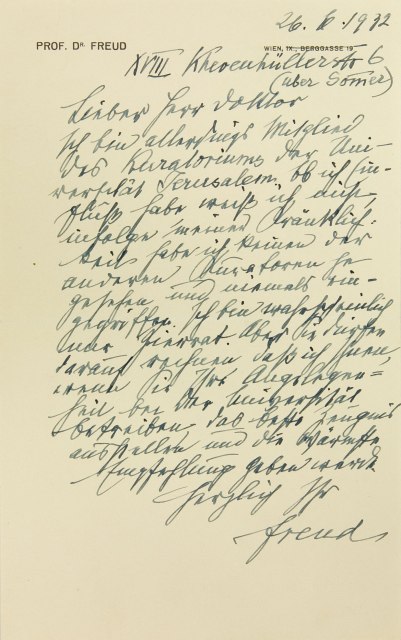 26. V. 1932
PROF. DR FREUD
WIEN, IX., BERGGASSE 19
XVIII Khevenhüllerstr 6
(über Somer)
Lieber Herr Doktor
Ich bin allerdings Mitglied
des Kuratoriums der Uni-
versität Jerusalem. Ob ich Ein-
fluß habe weiß ich nicht,
infolge meiner Kränklich-
keit habe ich keinen der
anderen Kuratoren je
gesehen und niemals ein-
gegriffen. Ich bin wahrscheinlich
nur Zierrat. Aber Sie dürfen
darauf rechnen daß ich Ihnen,
wenn Sie Ihre Angelegen=
heit bei der Universität
betreiben das beste Zeugnis
ausstellen und die wärmste
Empfehlung geben werde
Herzlich Ihr
Freud